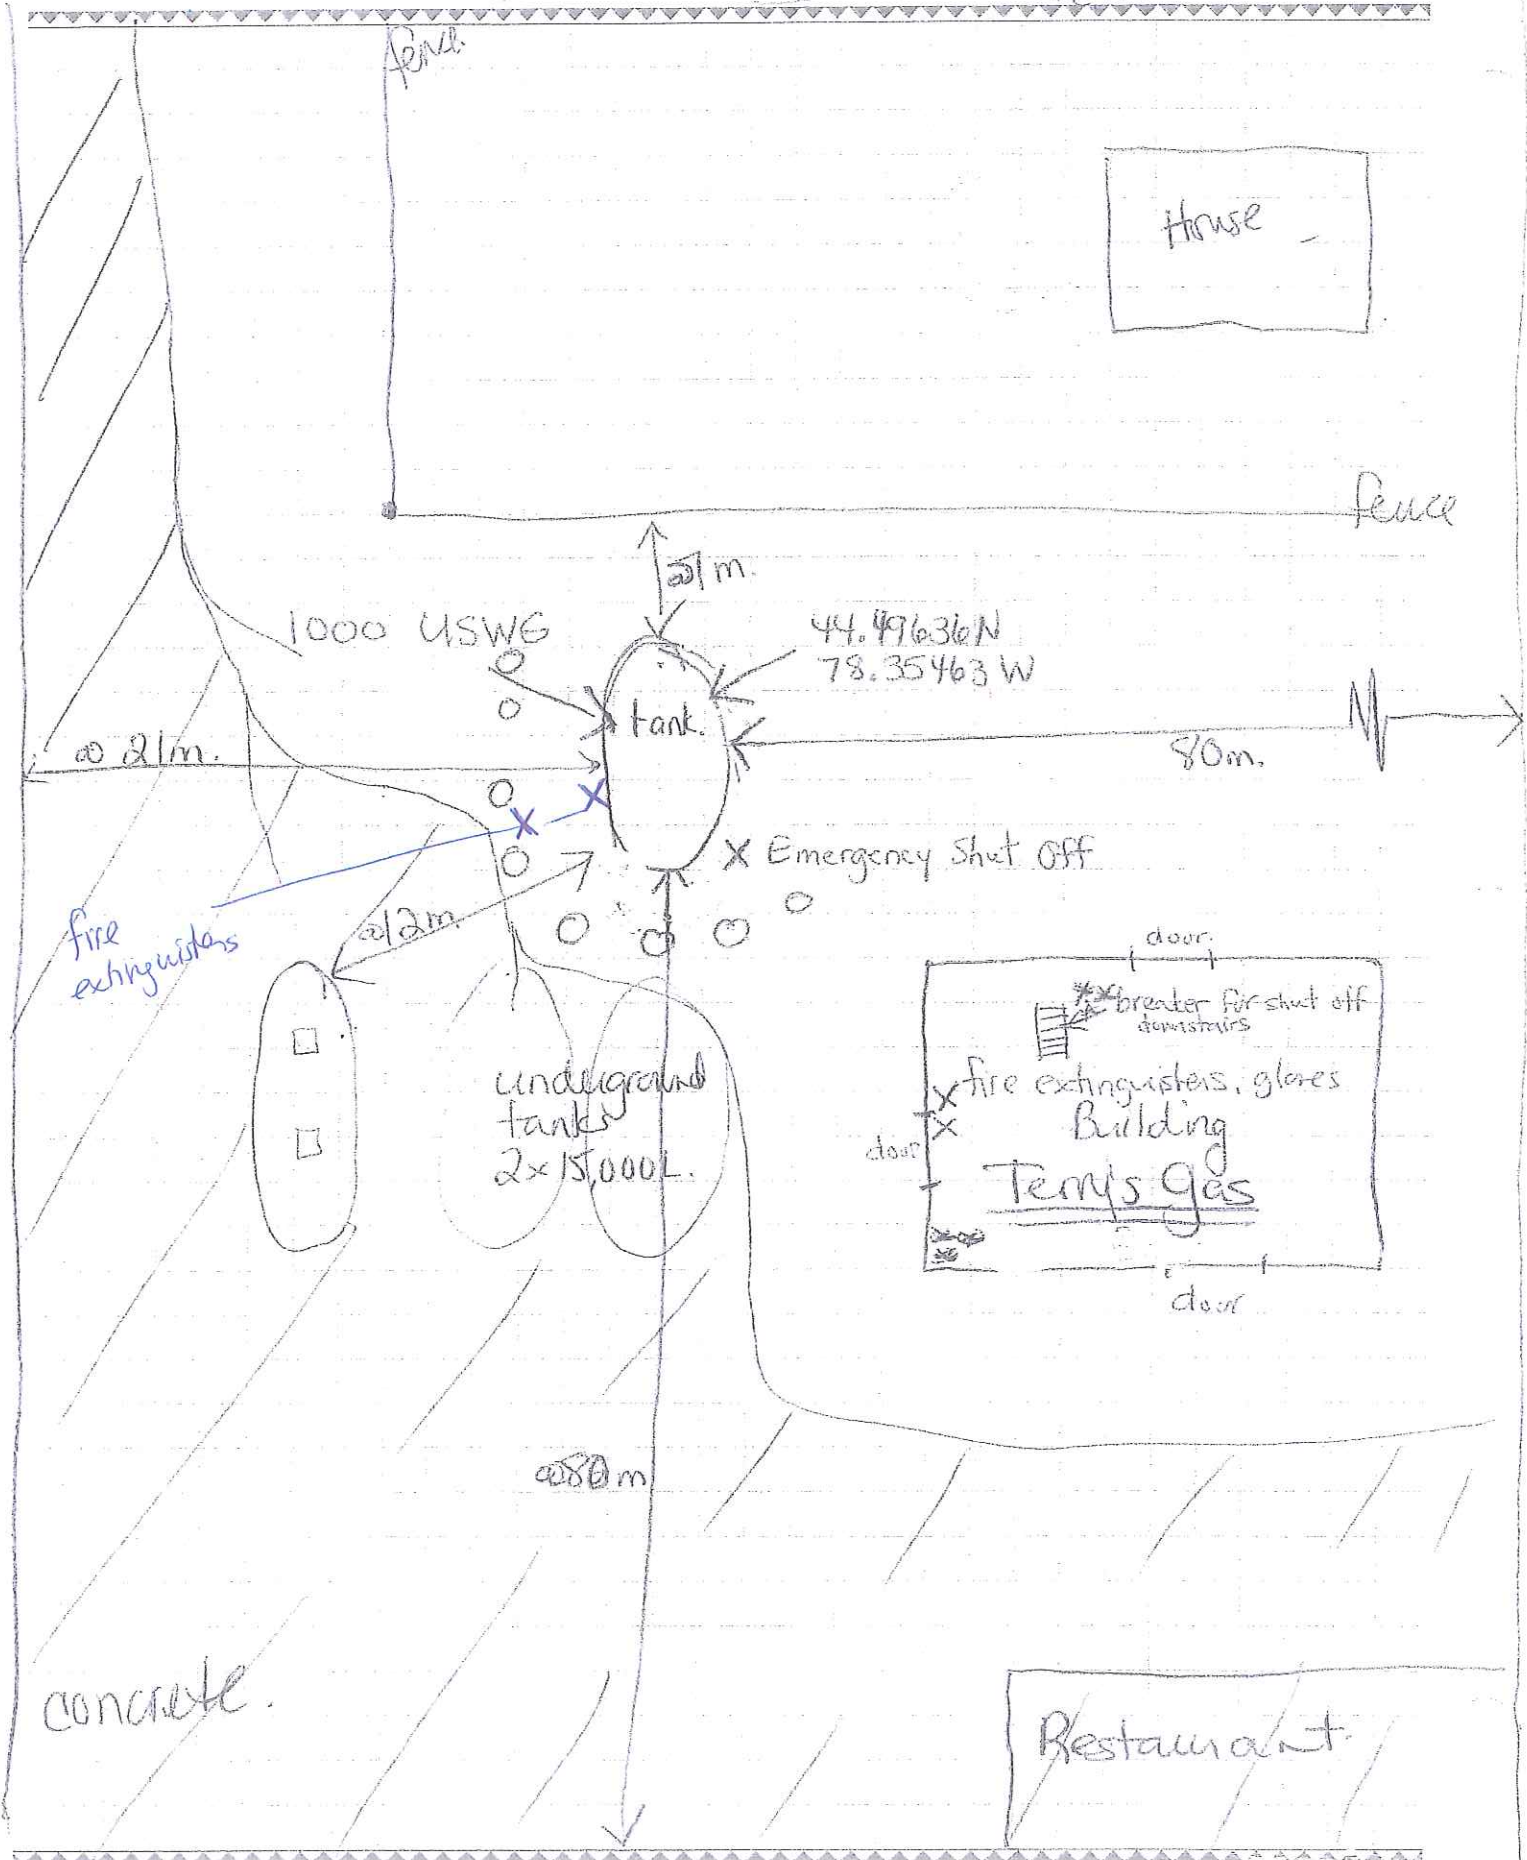 fence
House
fence
1m.
1000 USWG
44.49636N
78.35463 W
tank.
21m.
80m.
X Emergency Shut Off
fire
extinguishers
12m
door.
breaker for shut off
downstairs
fire extinguishers, gloves
Building
door
Terry's Gas
underground
tanks
2x15,000L.
door
80m
concrete.
Restaurant.